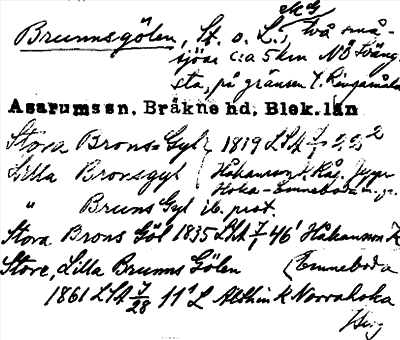 Brunnsgölen, St. o. L., två små-
sjöar c:a 5 km NÖ Sväng-
sta, på gränsen t. Ringamåla
Asarums sn, Bräkne hd, Blek. län
Stora Brons Gyl 1819 LSA
Lilla Bronsgyl Håkanson k Råg.
" Bruns Gyl ib. prot.
Stora Brons Göl 1835 46' Håkanson k
Store, Lilla Brunns Gölen (Emneboda
1861 LSA 11' L Althin k Norrahoka